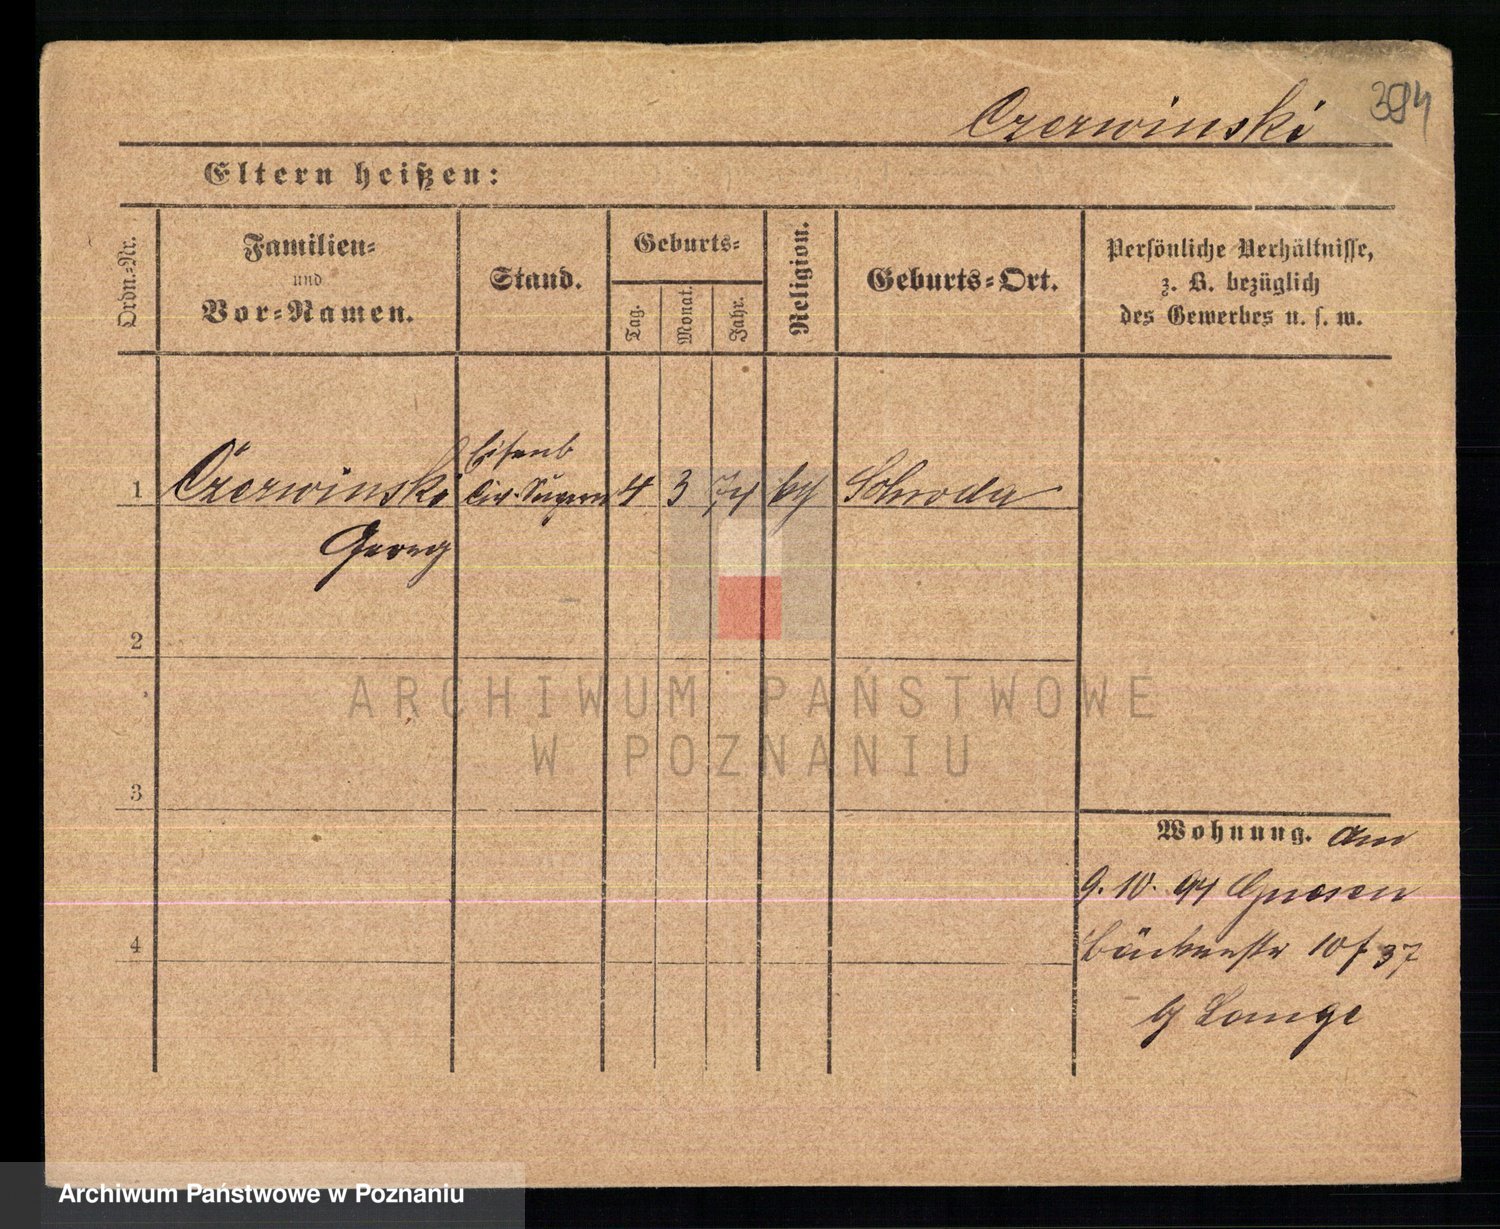 394
Czerwinski
Eltern heißen:
Ordn.-Nr.
Familien-
und
Vor-Namen.
Stand.
Geburts-
Tag.
Monat.
Jahr.
Religion.
Geburts-Ort.
Persönliche Verhältnisse,
z. B. bezüglich
des Gewerbes u. s. w.
Eisenb
1 Czerwinski Civ. Supern 4 3 74 Schroda
Georg
2
3
4
Wohnung. Am
9. 10. 94 Gnesen
Bäckerstr 10 f 37
b/ Lange
ARCHIWUM PAŃSTWOWE
W POZNANIU
Archiwum Państwowe w Poznaniu